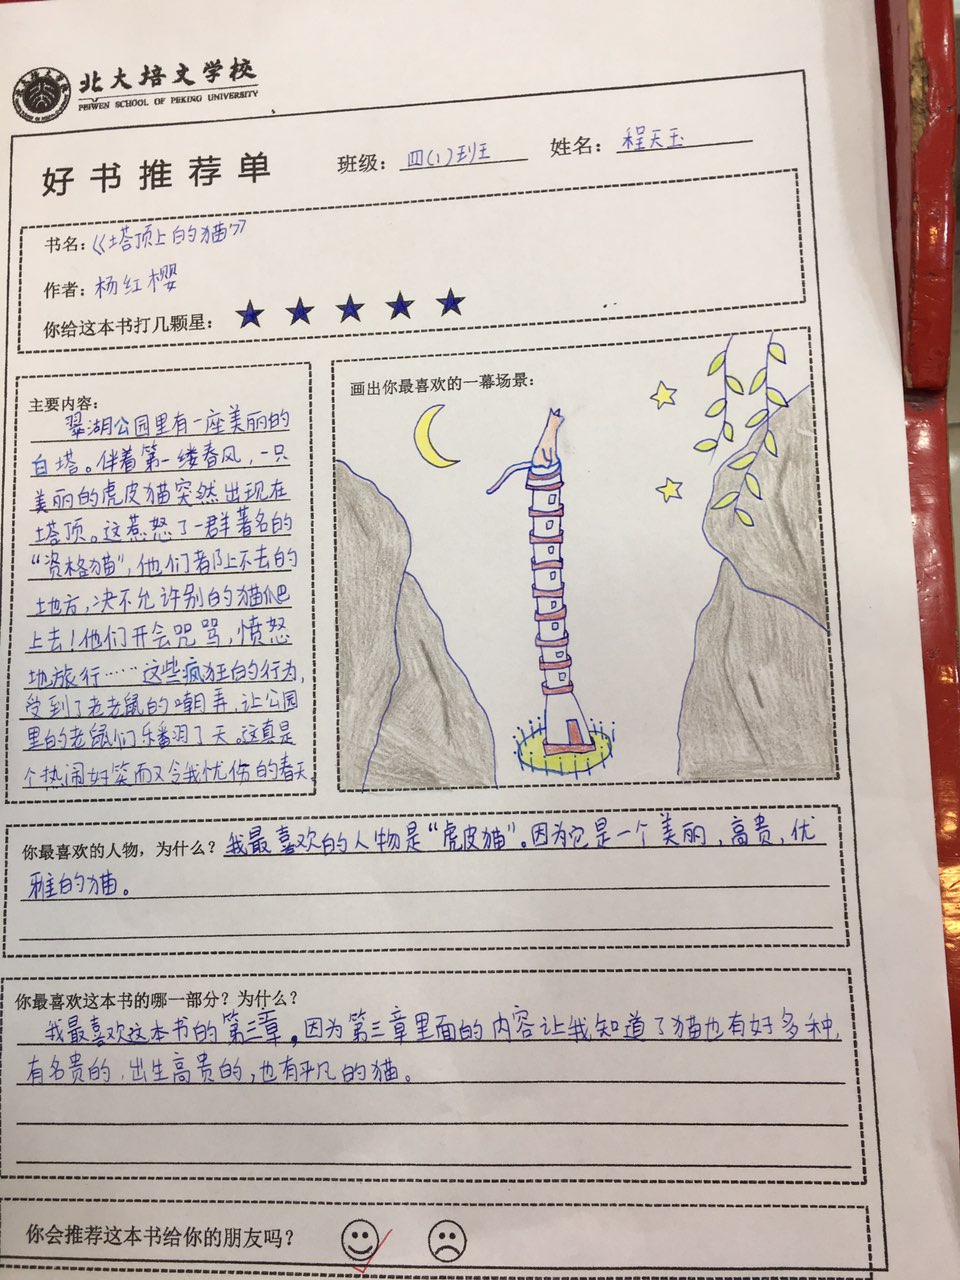 北大培文学校
PEIWEN SCHOOL OF PEKING UNIVERSITY
好书推荐单 班级：四(1)班 姓名：程天玉
书名：《塔顶上的猫》
作者：杨红樱
你给这本书打几颗星：
主要内容：
翠湖公园里有一座美丽的
白塔。伴着第一缕春风，一只
美丽的虎皮猫突然出现在
塔顶。这惹怒了一群著名的
“资格猫”，他们都上不去的
地方，决不允许别的猫爬
上去！他们开会咒骂，愤怒
地旅行……这些疯狂的行为，
受到了老老鼠的嘲弄，让公园
里的老鼠们乐翻了天。这真是
个热闹好笑而又令我忧伤的春天
画出你最喜欢的一幕场景：
你最喜欢的人物，为什么？我最喜欢的人物是“虎皮猫”。因为它是一个美丽，高贵，优
雅的猫。
你最喜欢这本书的哪一部分？为什么？
我最喜欢这本书的第三章。因为第三章里面的内容让我知道了猫也有好多种，
有名贵的，出生高贵的，也有平凡的猫。
你会推荐这本书给你的朋友吗？